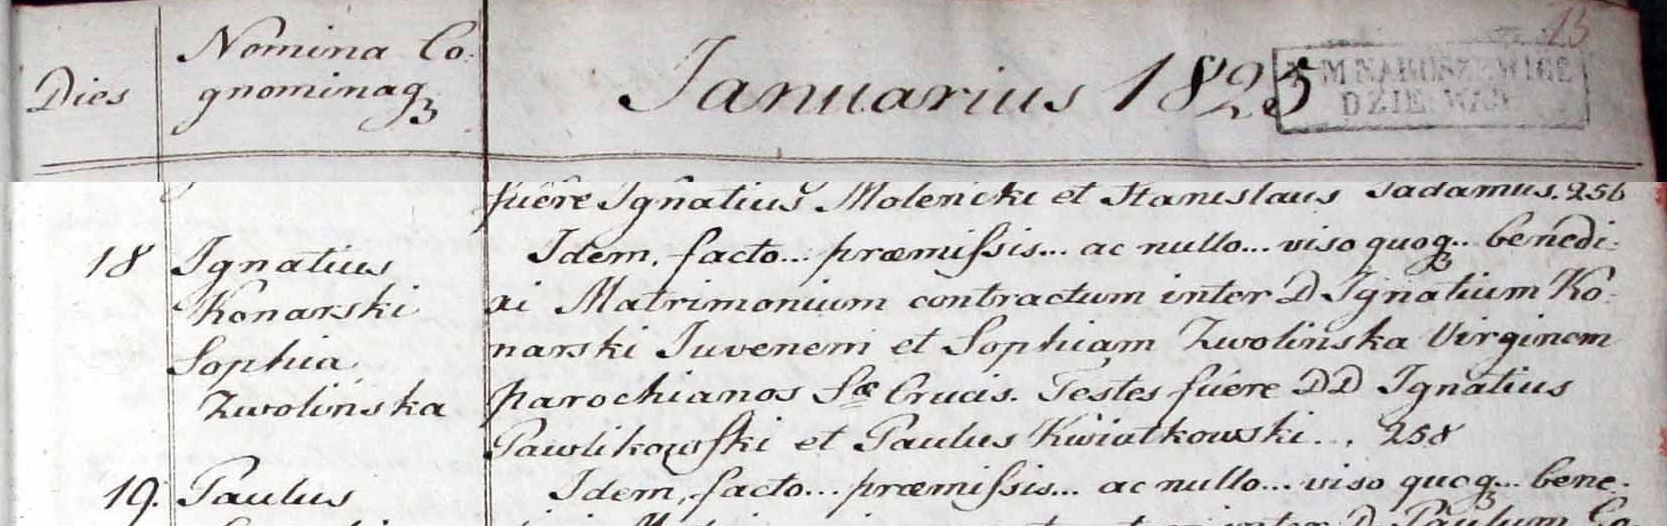 Dies
Nomina Co:
gnominaq3
Januarius 1825
13
DZIE WAN
fuêre Ignatius Molenicki et Stanislaus Sadamus. 256
18 Ignatius
Konarski
Sophia
Zwolińska
Idem, facto... præmiſsis... ac nullo... viso quoq3... benedi:
xi Matrimonium contractum inter D Ignatium Ko:
narski Iuvenem et Sophiam Zwolinska Virginem
parochianos Sæ Crucis. Testes fuere DD Ignatius
Pawlikowſki et Paulus Kwiatkowski... 258
19. Paulus
Idem, facto... præmiſsis... ac nullo... viso quoq3... bene:
inter D. Paulum